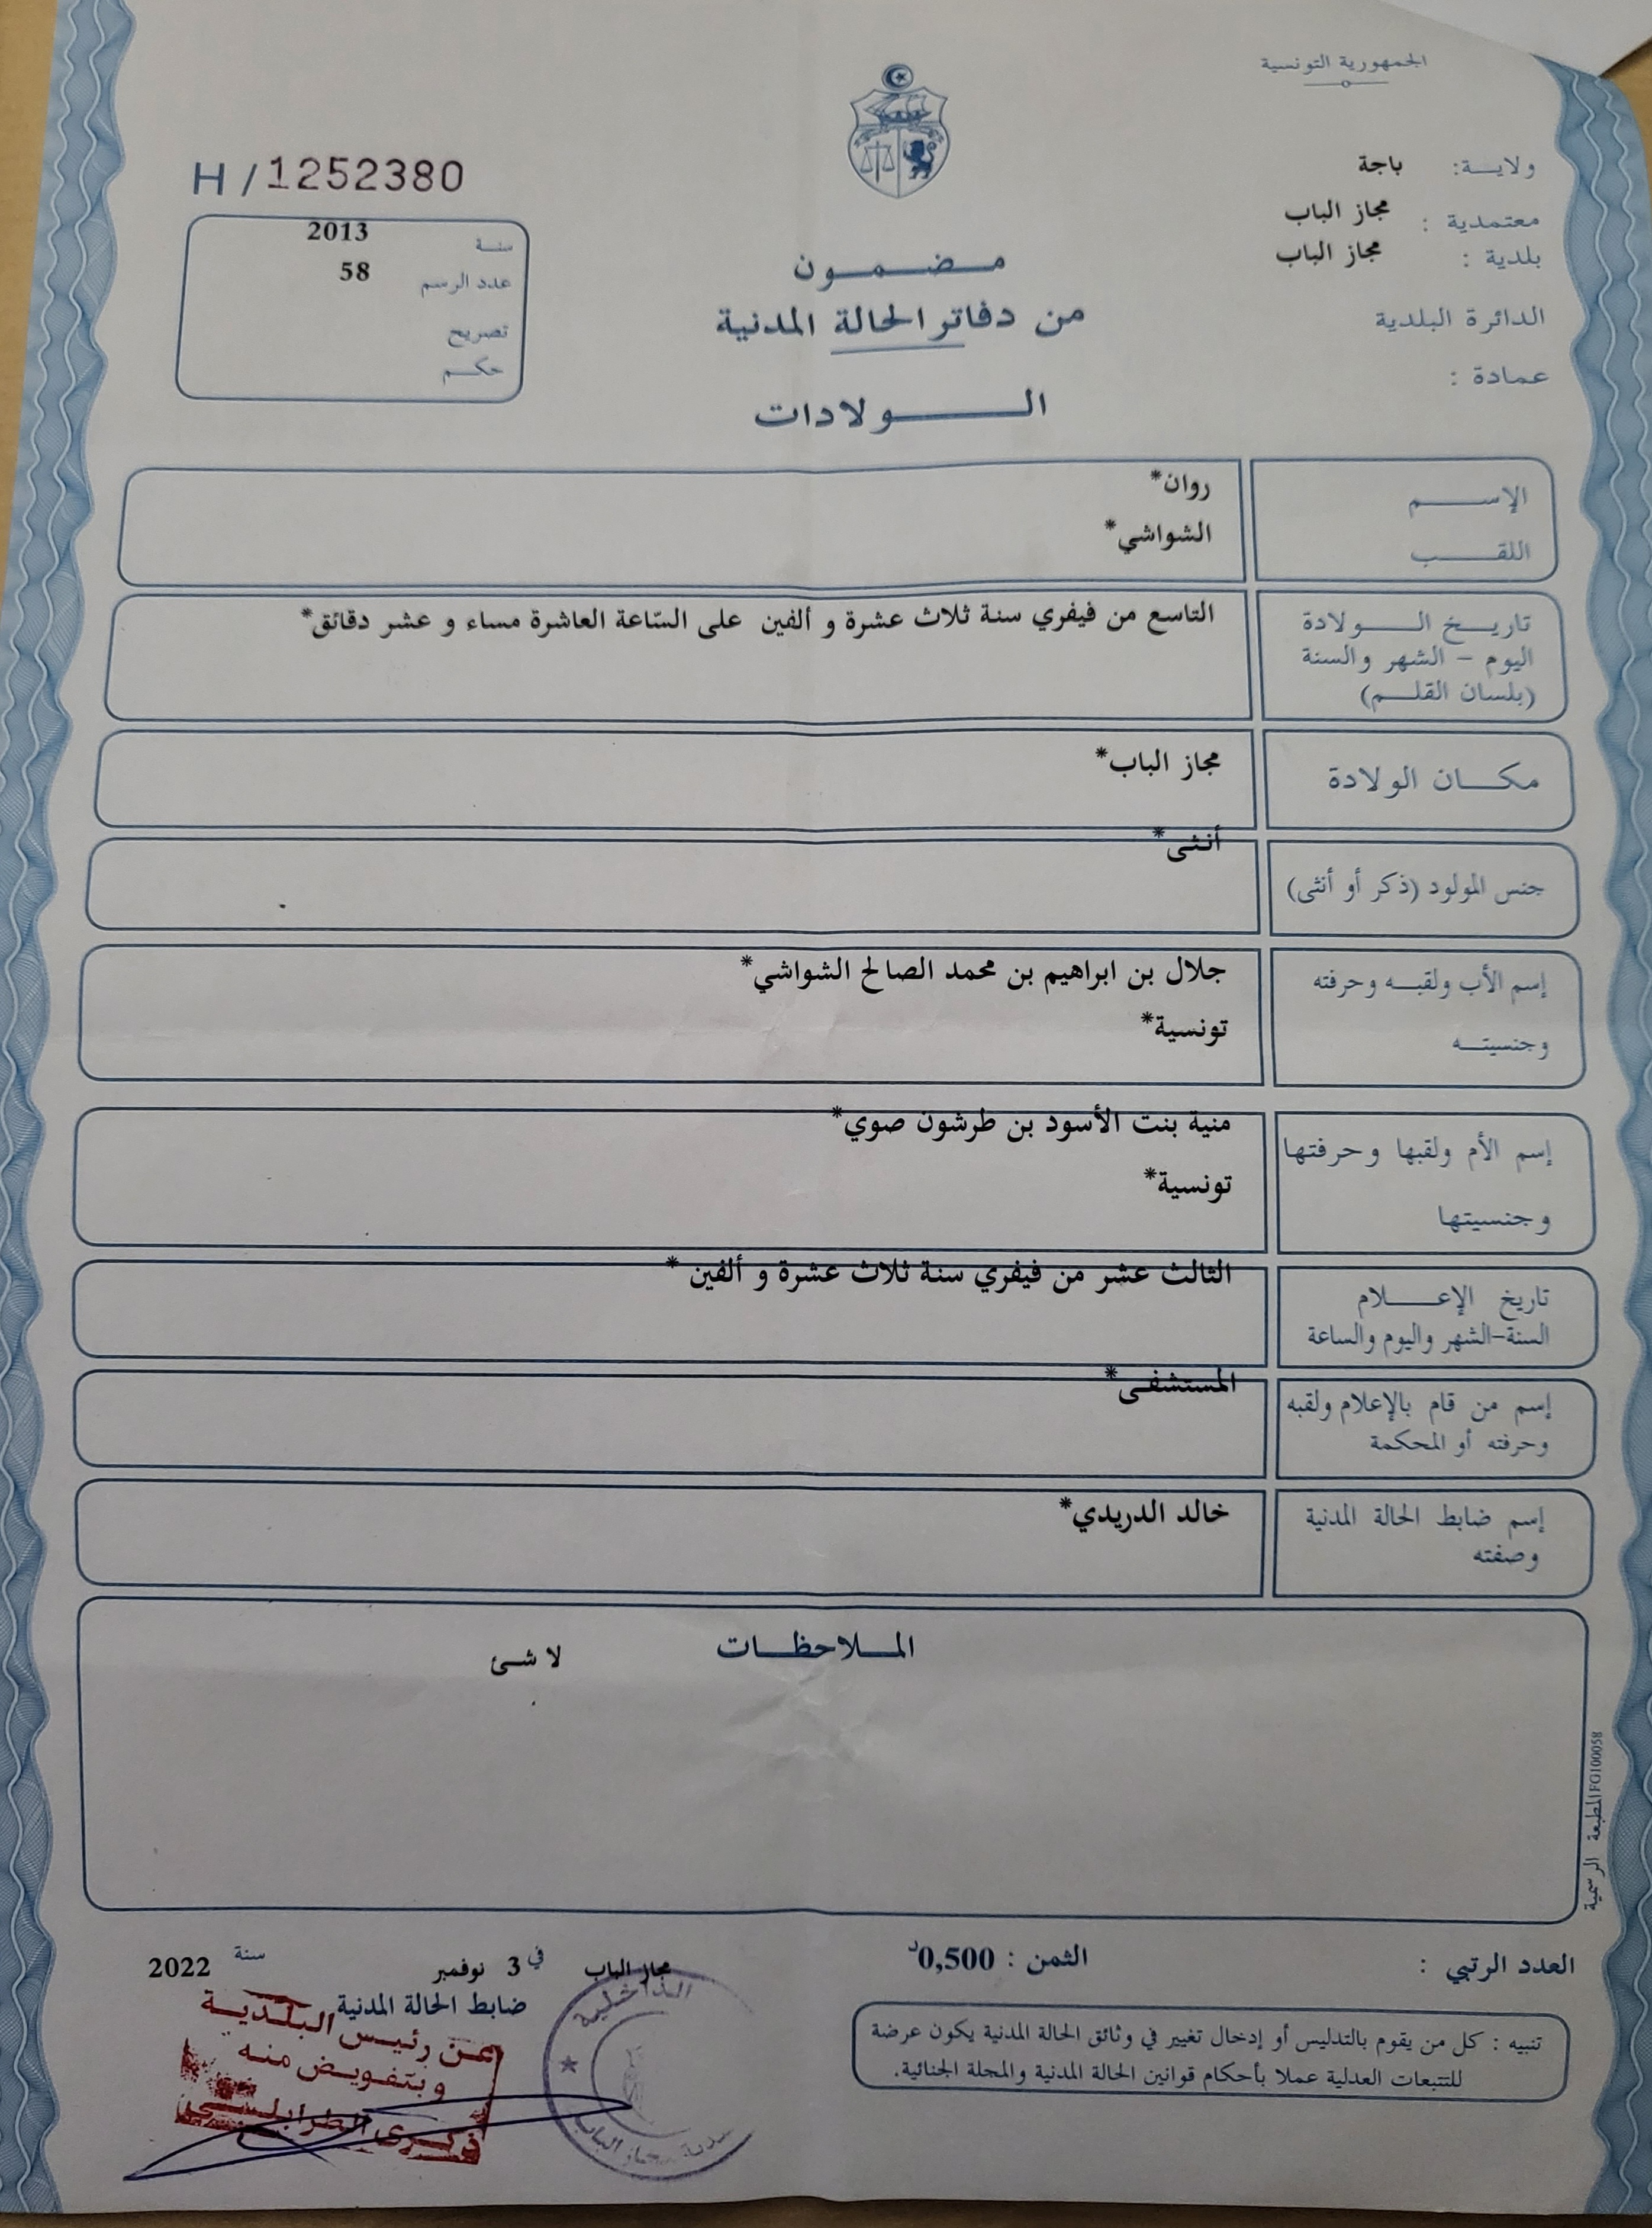 الجمهورية التونسية
ولاية: باجة
معتمدية : مجاز الباب
بلدية : مجاز الباب
الدائرة البلدية
عمادة :
H/1252380
سنة 2013
عدد الرسم 58
تصريح
حكم
مضمون
من دفاتر الحالة المدنية
الولادات
الإسم روان*
اللقب الشواشي*
تاريخ الولادة التاسع من فيفري سنة ثلاث عشرة و ألفين على السّاعة العاشرة مساء و عشر دقائق*
اليوم – الشهر والسنة
(بلسان القلم)
مكان الولادة مجاز الباب*
أنثى*
جنس المولود (ذكر أو أنثى)
إسم الأب ولقبه وحرفته جلال بن ابراهيم بن محمد الصالح الشواشي*
وجنسيته تونسية*
إسم الأم ولقبها وحرفتها منية بنت الأسود بن طرشون صوي*
وجنسيتها تونسية*
الثالث عشر من فيفري سنة ثلاث عشرة و ألفين *
تاريخ الإعلام
السنة-الشهر واليوم والساعة
المستشفى*
إسم من قام بالإعلام ولقبه
وحرفته أو المحكمة
إسم ضابط الحالة المدنية خالد الدريدي*
وصفته
الملاحظات لا شئ
المطبعة الرسمية FG100058
العدد الرتبي :
الثمن : 0,500د
مجاز الباب في 3 نوفمبر سنة 2022
ضابط الحالة المدنية
تنبيه : كل من يقوم بالتدليس أو إدخال تغيير في وثائق الحالة المدنية يكون عرضة
للتتبعات العدلية عملا بأحكام قوانين الحالة المدنية والمجلة الجنائية.
عن رئيس البلدية
وبتفويض منه
ذكرى الطرابلسي
الداخلية
بلدية مجاز الباب